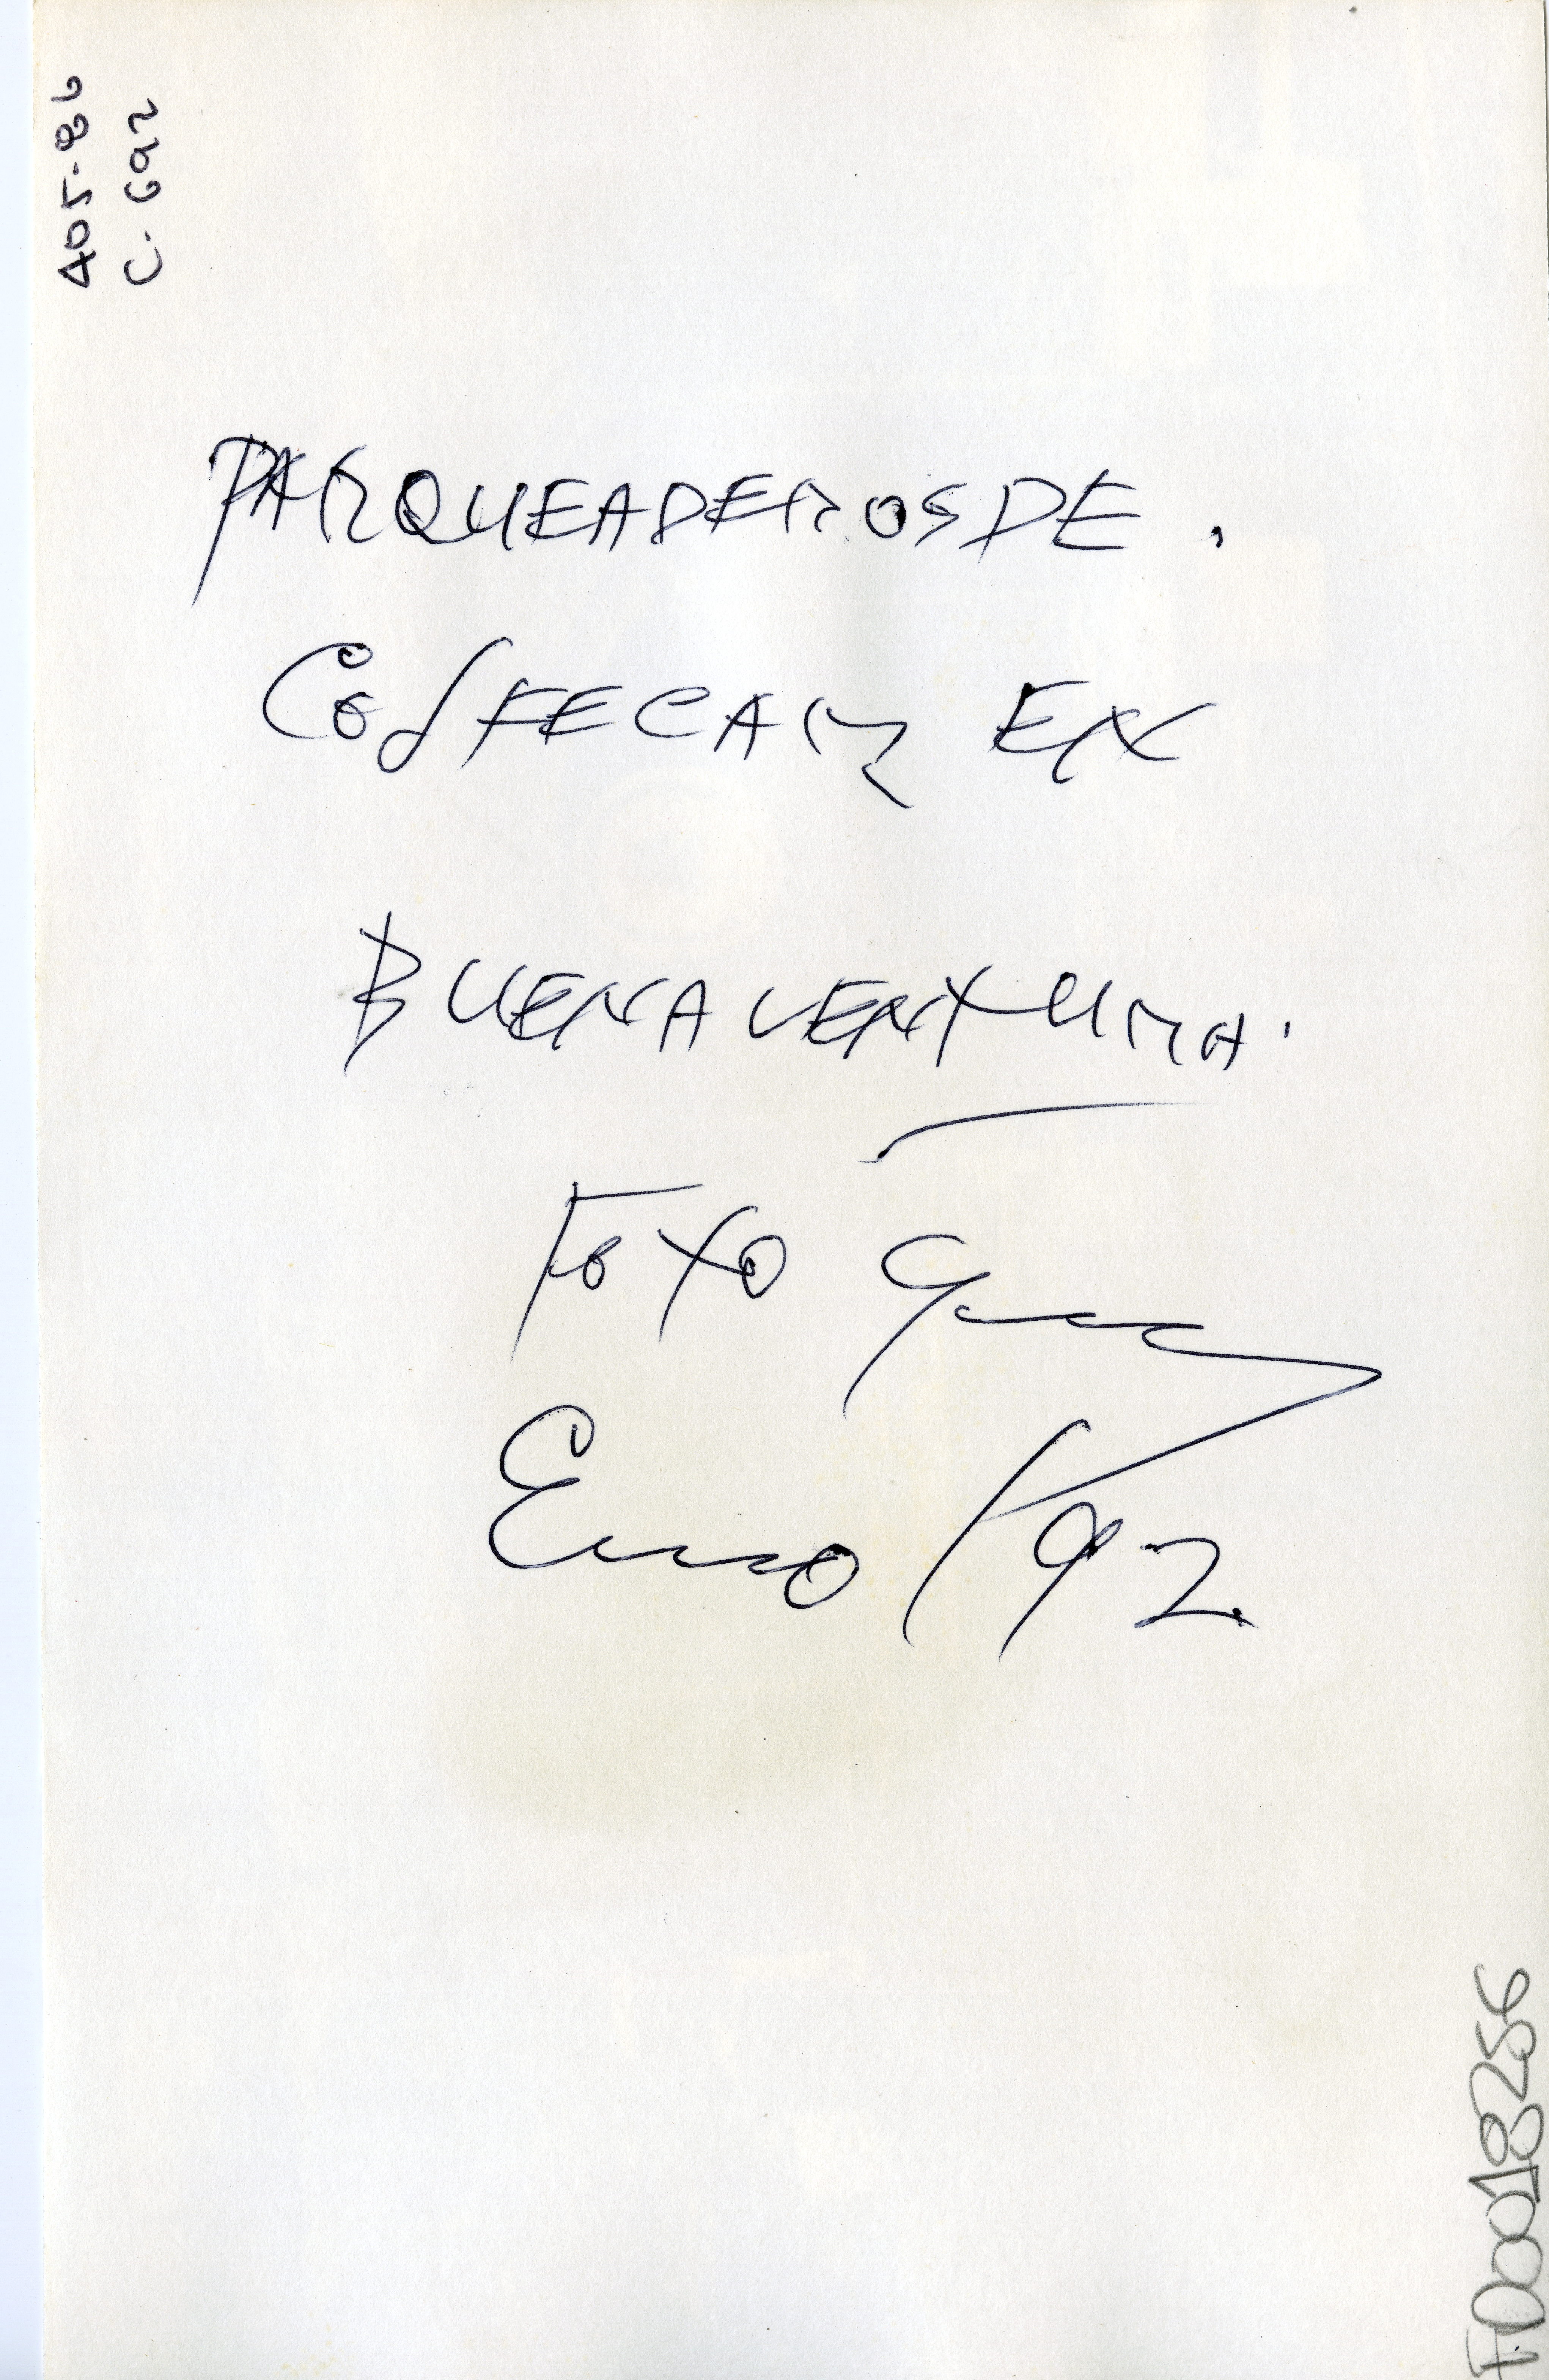 405-86
C. 692
PARQUEADEROS DE.
COLFECAR EN
BUENAVENTURA.
FOTO
Enero/92.
FD0018256